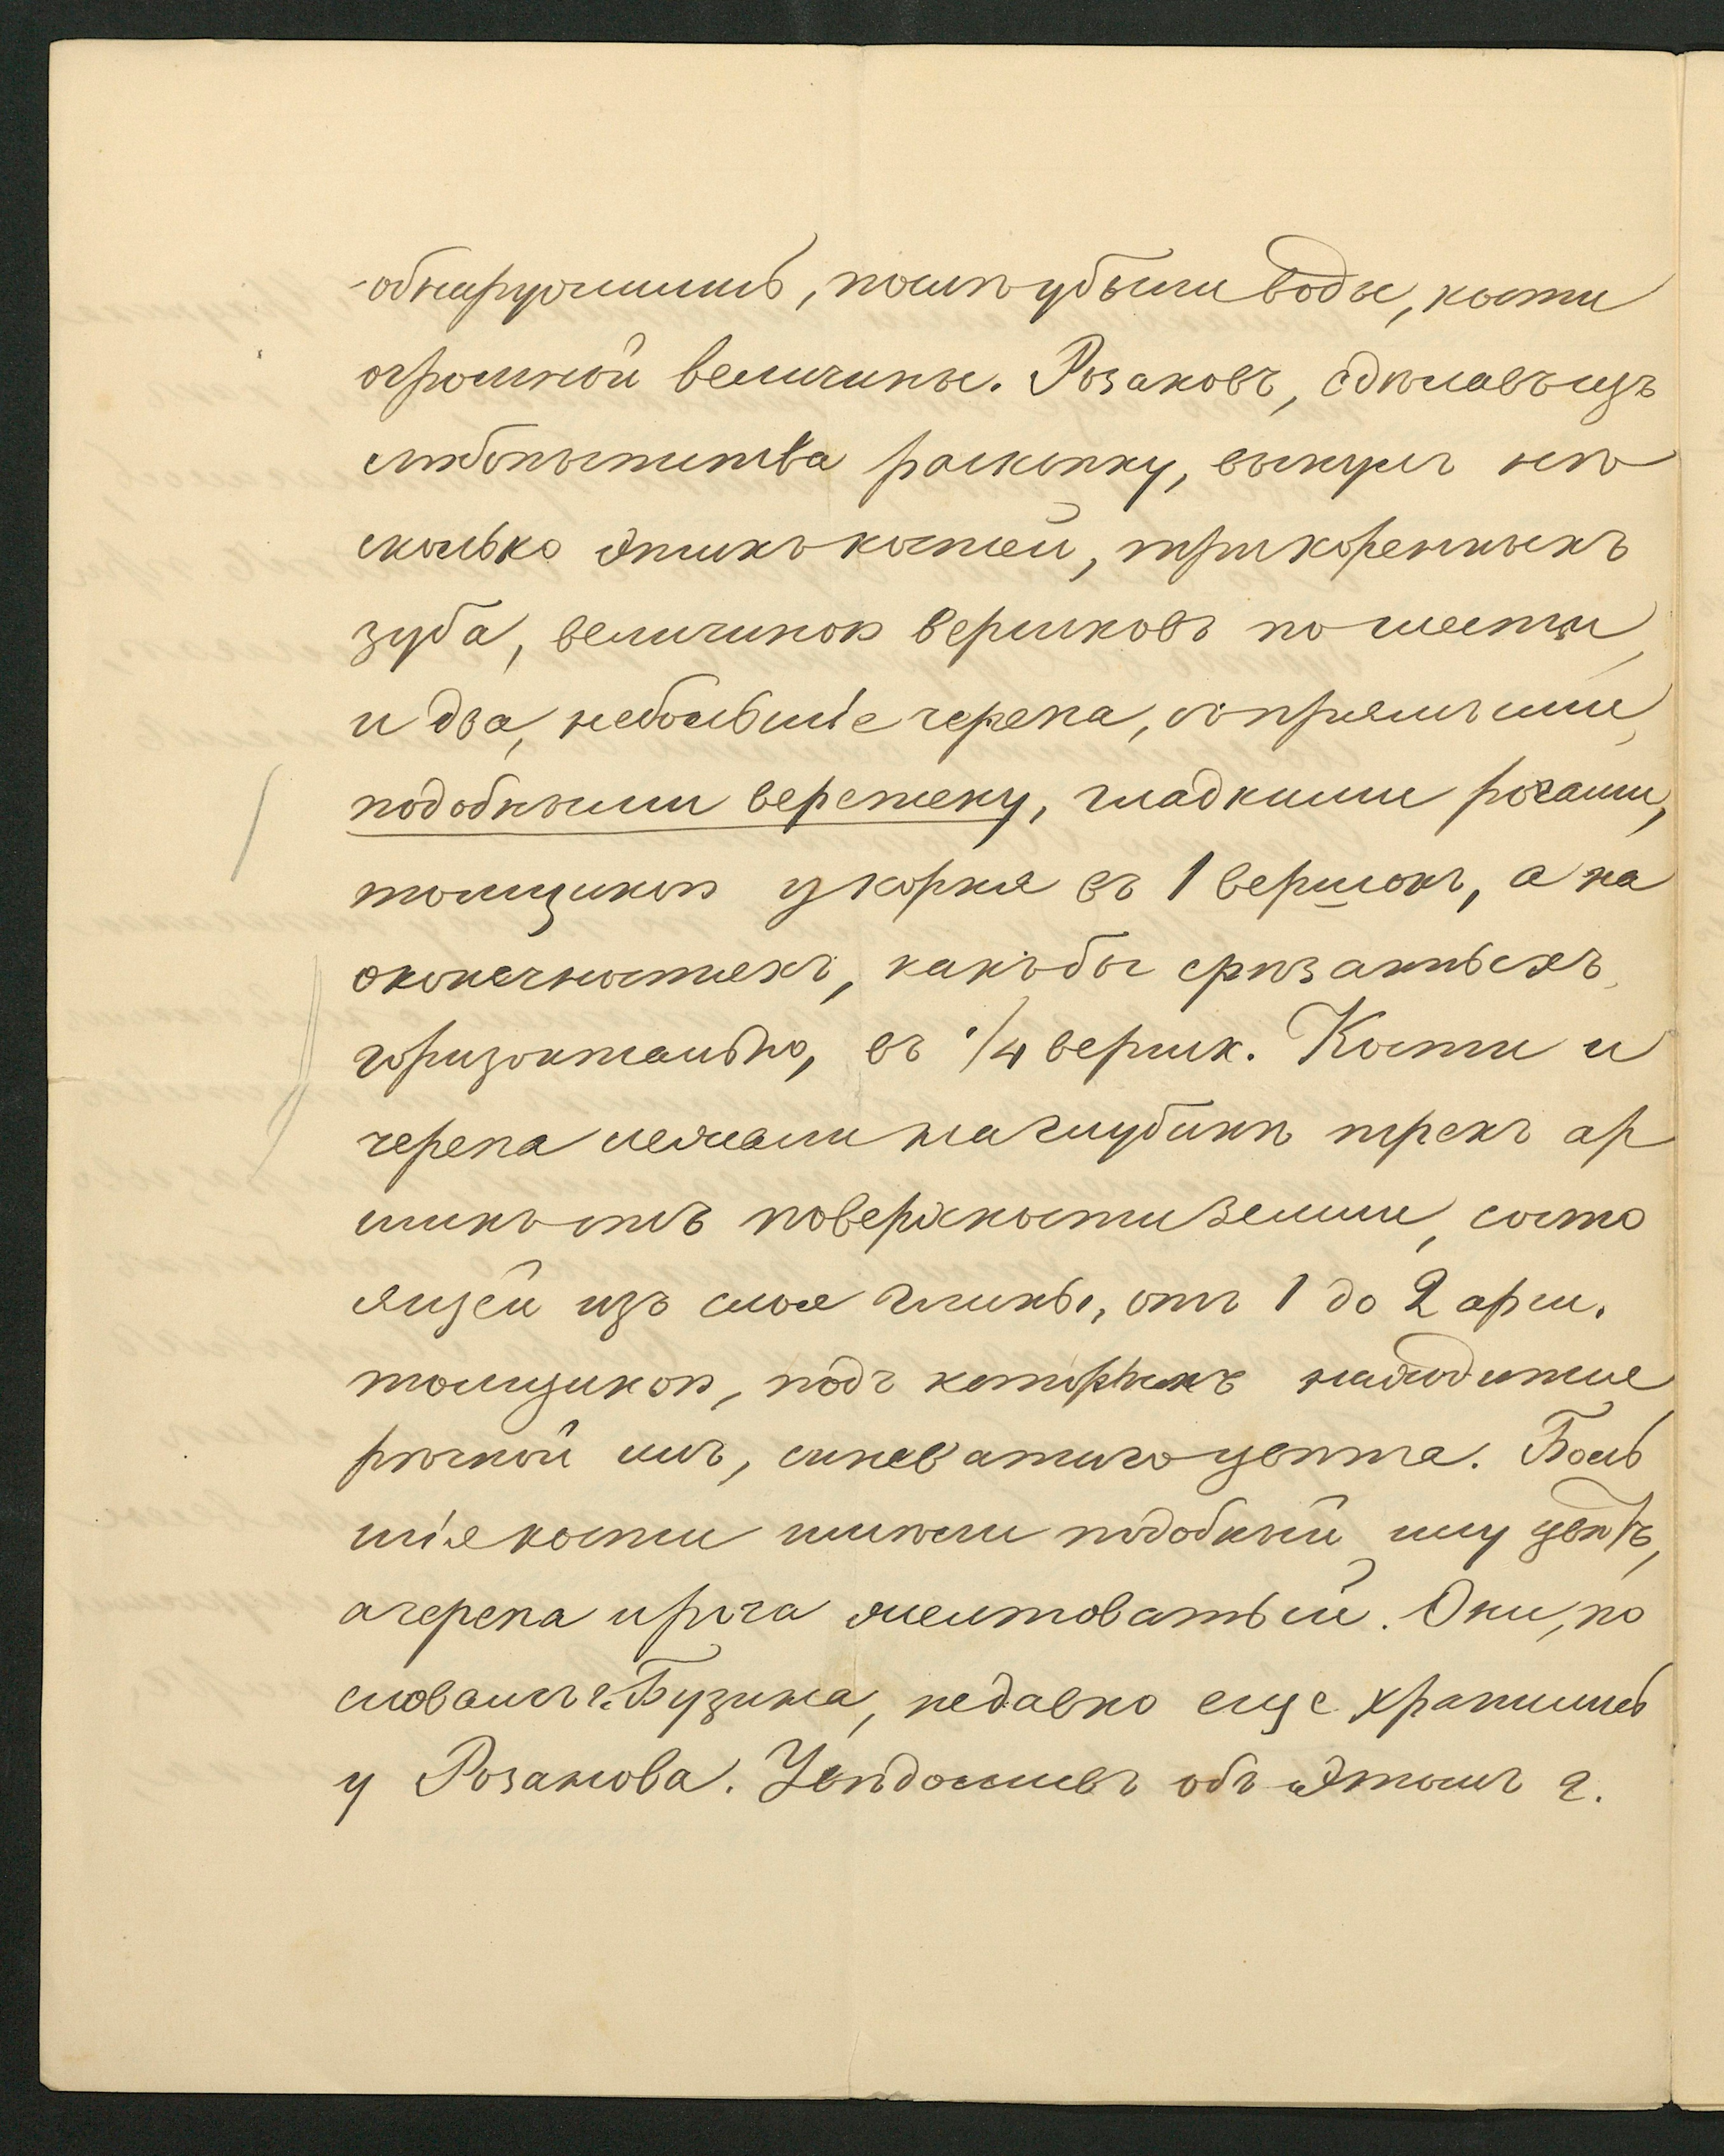 обнаружились, послѣ убыли воды, кости
огромной величины. Розановъ, сдѣлавъ изъ
любопытства раскопку, вынулъ нѣ
сколько этихъ костей, три коренныхъ
зуба, величиною вершковъ по шести
и два, небольшіе черепа, съ прямыми,
подобными веретену, гладкими рогами,
толщиною у корня въ 1 вершокъ, а на
оконечностяхъ, какъ бы срѣзанныхъ
горизонтально, въ 1/4 вершк. Кости и
черепа лежали на глубинѣ трехъ ар
шинъ отъ поверхности земли, состо
ящей изъ слоя глины, отъ 1 до 2 арш.
толщиною, подъ которымъ находится
рѣчной илъ, синеватаго цвѣта. Боль
шія кости имѣли подобный илу цвѣтъ,
а черепа и рога желтоватый. Они, по
словамъ г. Бузина, недавно еще хранились
у Розанова. Увѣдомивъ объ этомъ г.